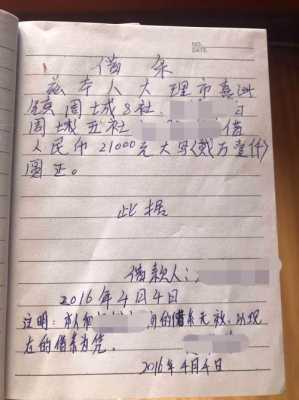 NO.
DATE
借条
兹本人大理市喜洲
镇周城8社
周城五社 借
人民币21000元大写(贰万壹仟)
圆正。
此据
借款人:
2016年4月4日
注明:本人和 的借条无效,以现
在的借条为凭。
2016年4月4日